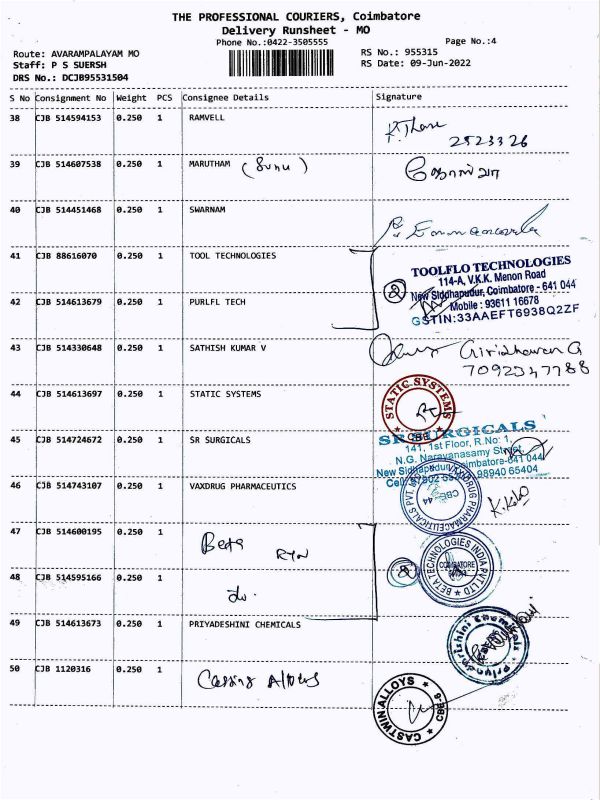 THE PROFESSIONAL COURIERS, Coimbatore
Delivery Runsheet - MO
Phone No.:0422-3505555
Page No.:4
Route: AVARAMPALAYAM MO
RS No.: 955315
Staff: P S SUERSH
RS Date: 09-Jun-2022
DRS No.: DCJB95531504
S No Consignment No Weight PCS Consignee Details Signature
38 CJB 514594153 0.250 1 RAMVELL
2523326
39 CJB 514607538 0.250 1 MARUTHAM
40 CJB 514451468 0.250 1 SWARNAM
41 CJB 88616070 0.250 1 TOOL TECHNOLOGIES
TOOLFLO TECHNOLOGIES
114-A, V.K.K. Menon Road
New Siddhapudur, Coimbatore - 641 044
Mobile : 93611 16678
GSTIN:33AAEFT6938Q2ZF
2
42 CJB 514613679 0.250 1 PURLFL TECH
43 CJB 514330648 0.250 1 SATHISH KUMAR V
Giridharan G
44 CJB 514613697 0.250 1 STATIC SYSTEMS
STATIC SYSTEMS
CBE
45 CJB 514724672 0.250 1 SR SURGICALS
SR SURGICALS
141, 1st Floor, R.No: 1,
N.G. Narayanasamy Street,
New Siddhapudur, Coimbatore-641 044
98940 65404
46 CJB 514743107 0.250 1 VAXDRUG PHARMACEUTICS
VAXDRUG PHARMACEUTICALS PVT.
CBE 44
47 CJB 514600195 0.250 1 Beta
BETA TECHNOLOGIES INDIA PVT LTD
COIMBATORE
2
48 CJB 514595166 0.250 1 do.
49 CJB 514613673 0.250 1 PRIYADESHINI CHEMICALS
Priyadharshini Chemicals
50 CJB 1120316 0.250 1
CASTWIN ALLOYS
CBE-6